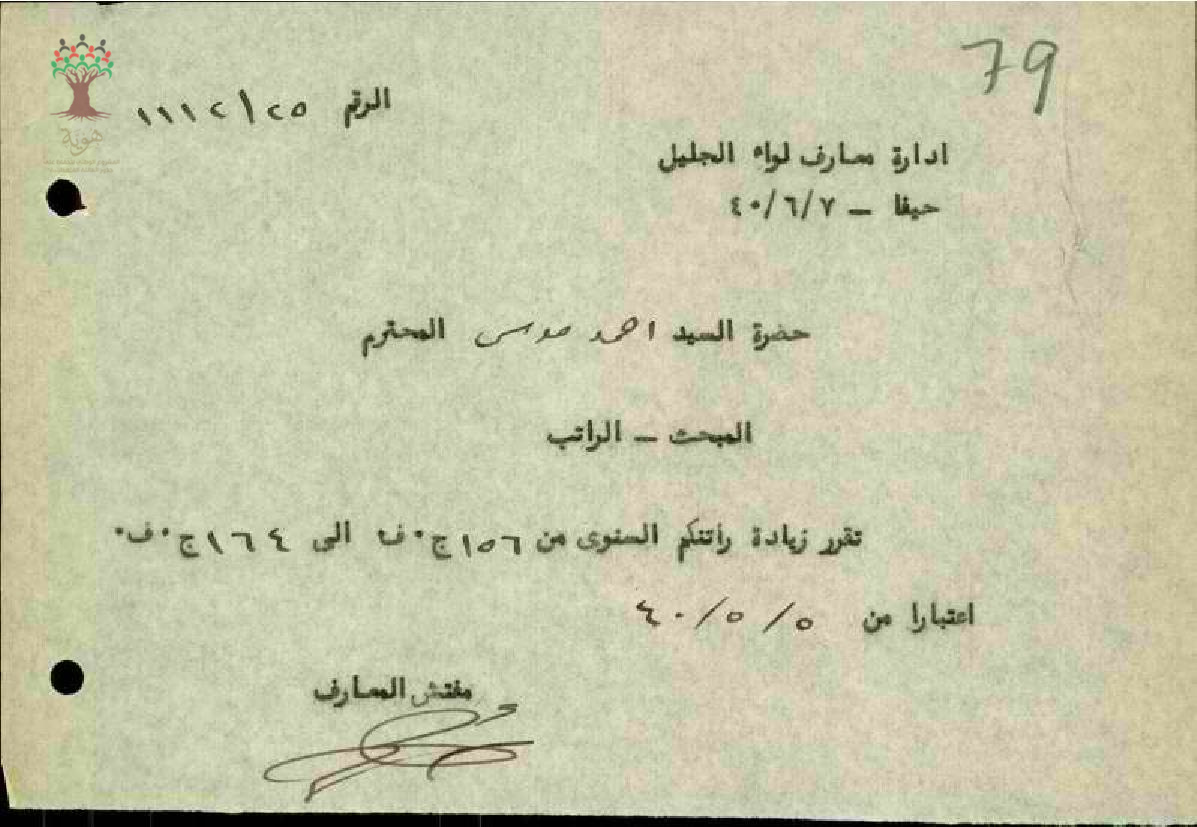 79
الرقم ١١١٢/٢٥
ادارة معارف لواء الجليل
حيفا – ٤٠/٦/٧
حضرة السيد احمد موسى المحترم
المبحث – الراتب
تقرر زيادة راتبكم السنوى من ١٥٦ ج٠ف الى ١٦٤ ج٠ف٠
اعتبارا من ٤٠/٥/٥
مفتش المعارف
هوية